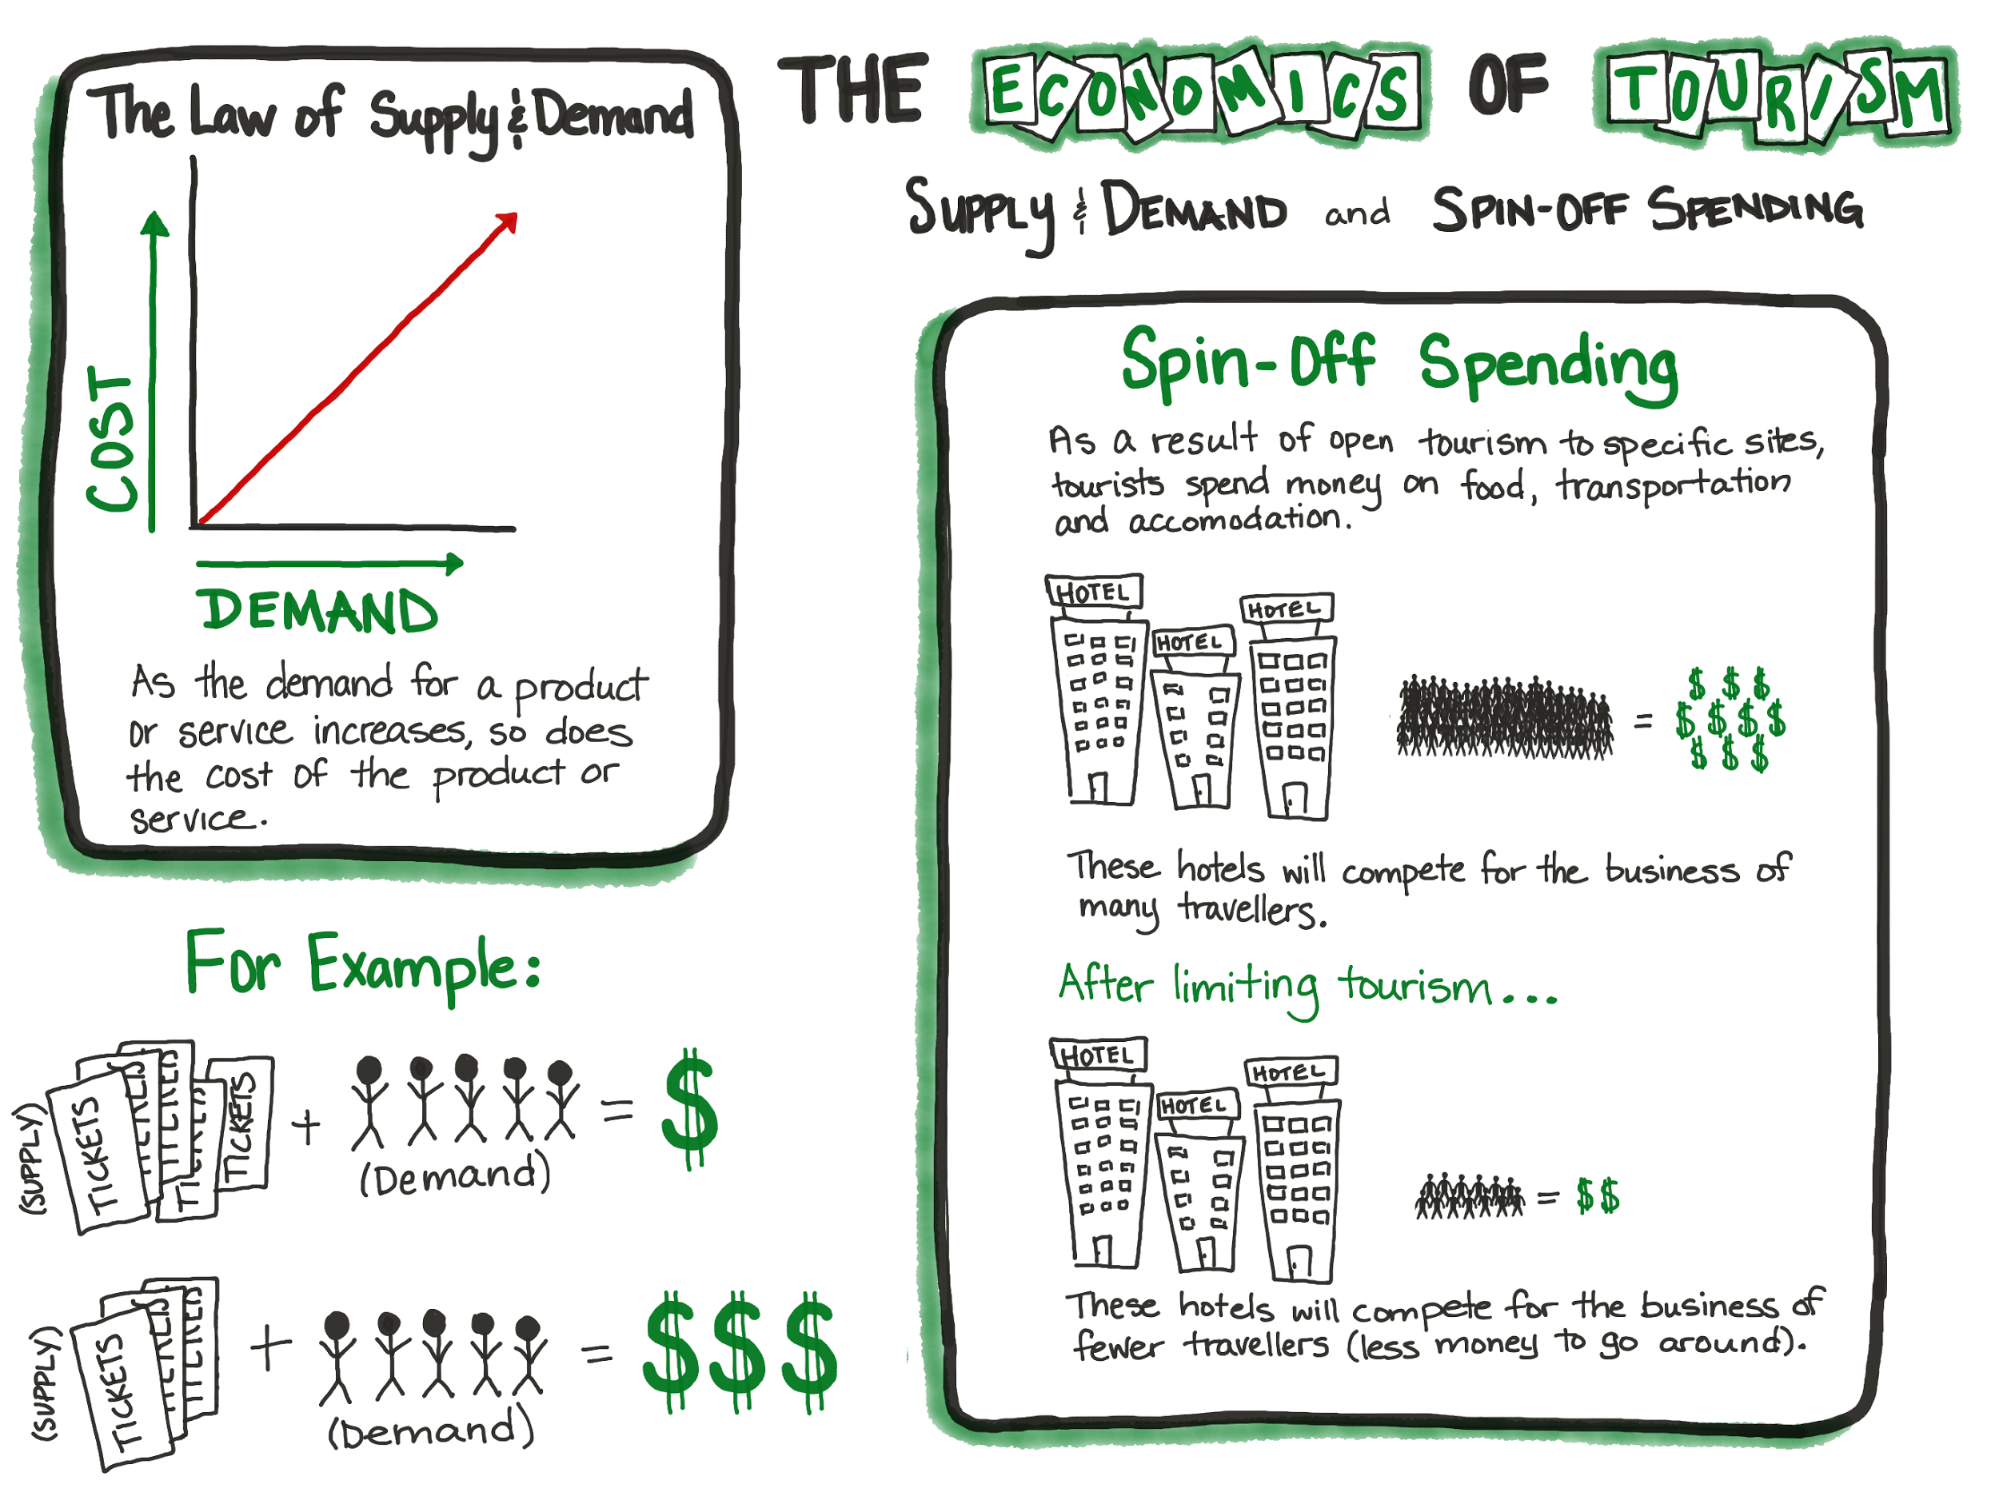 THE ECONOMICS OF TOURISM
SUPPLY & DEMAND and SPIN-OFF SPENDING
The Law of Supply & Demand
COST
DEMAND
As the demand for a product
or service increases, so does
the cost of the product or
service.
For Example:
(SUPPLY)
TICKETS
TICKETS
TICKETS
TICKETS
TICKETS
+
(Demand)
= $
(SUPPLY)
TICKETS
TICKETS
TICKETS
+
(Demand)
= $$$
Spin-Off Spending
As a result of open tourism to specific sites,
tourists spend money on food, transportation
and accomodation.
HOTEL
HOTEL
HOTEL
= $ $ $
$ $ $ $
$ $ $
These hotels will compete for the business of
many travellers.
After limiting tourism...
HOTEL
HOTEL
HOTEL
= $$
These hotels will compete for the business of
fewer travellers (less money to go around).